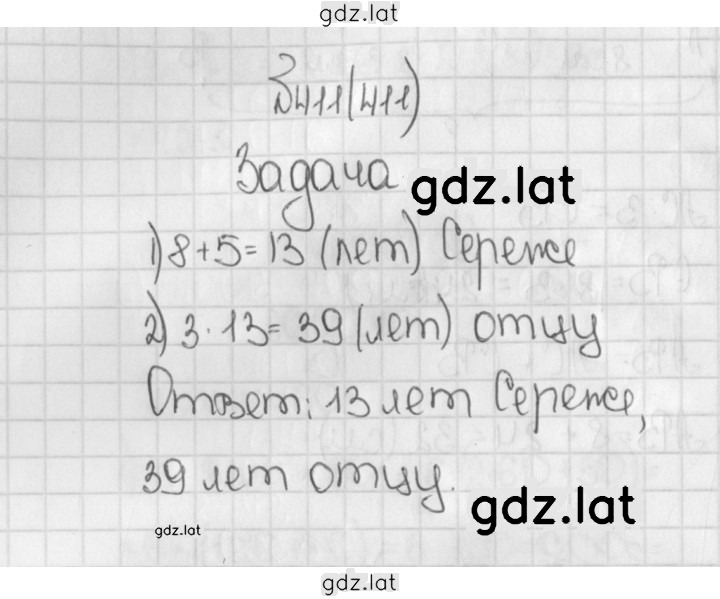 gdz.lat
№411(411)
Задача
gdz.lat
1) 8+5=13 (лет) Сереже
2) 3·13=39 (лет) отцу
Ответ: 13 лет Сереже,
39 лет отцу.
gdz.lat
gdz.lat
gdz.lat